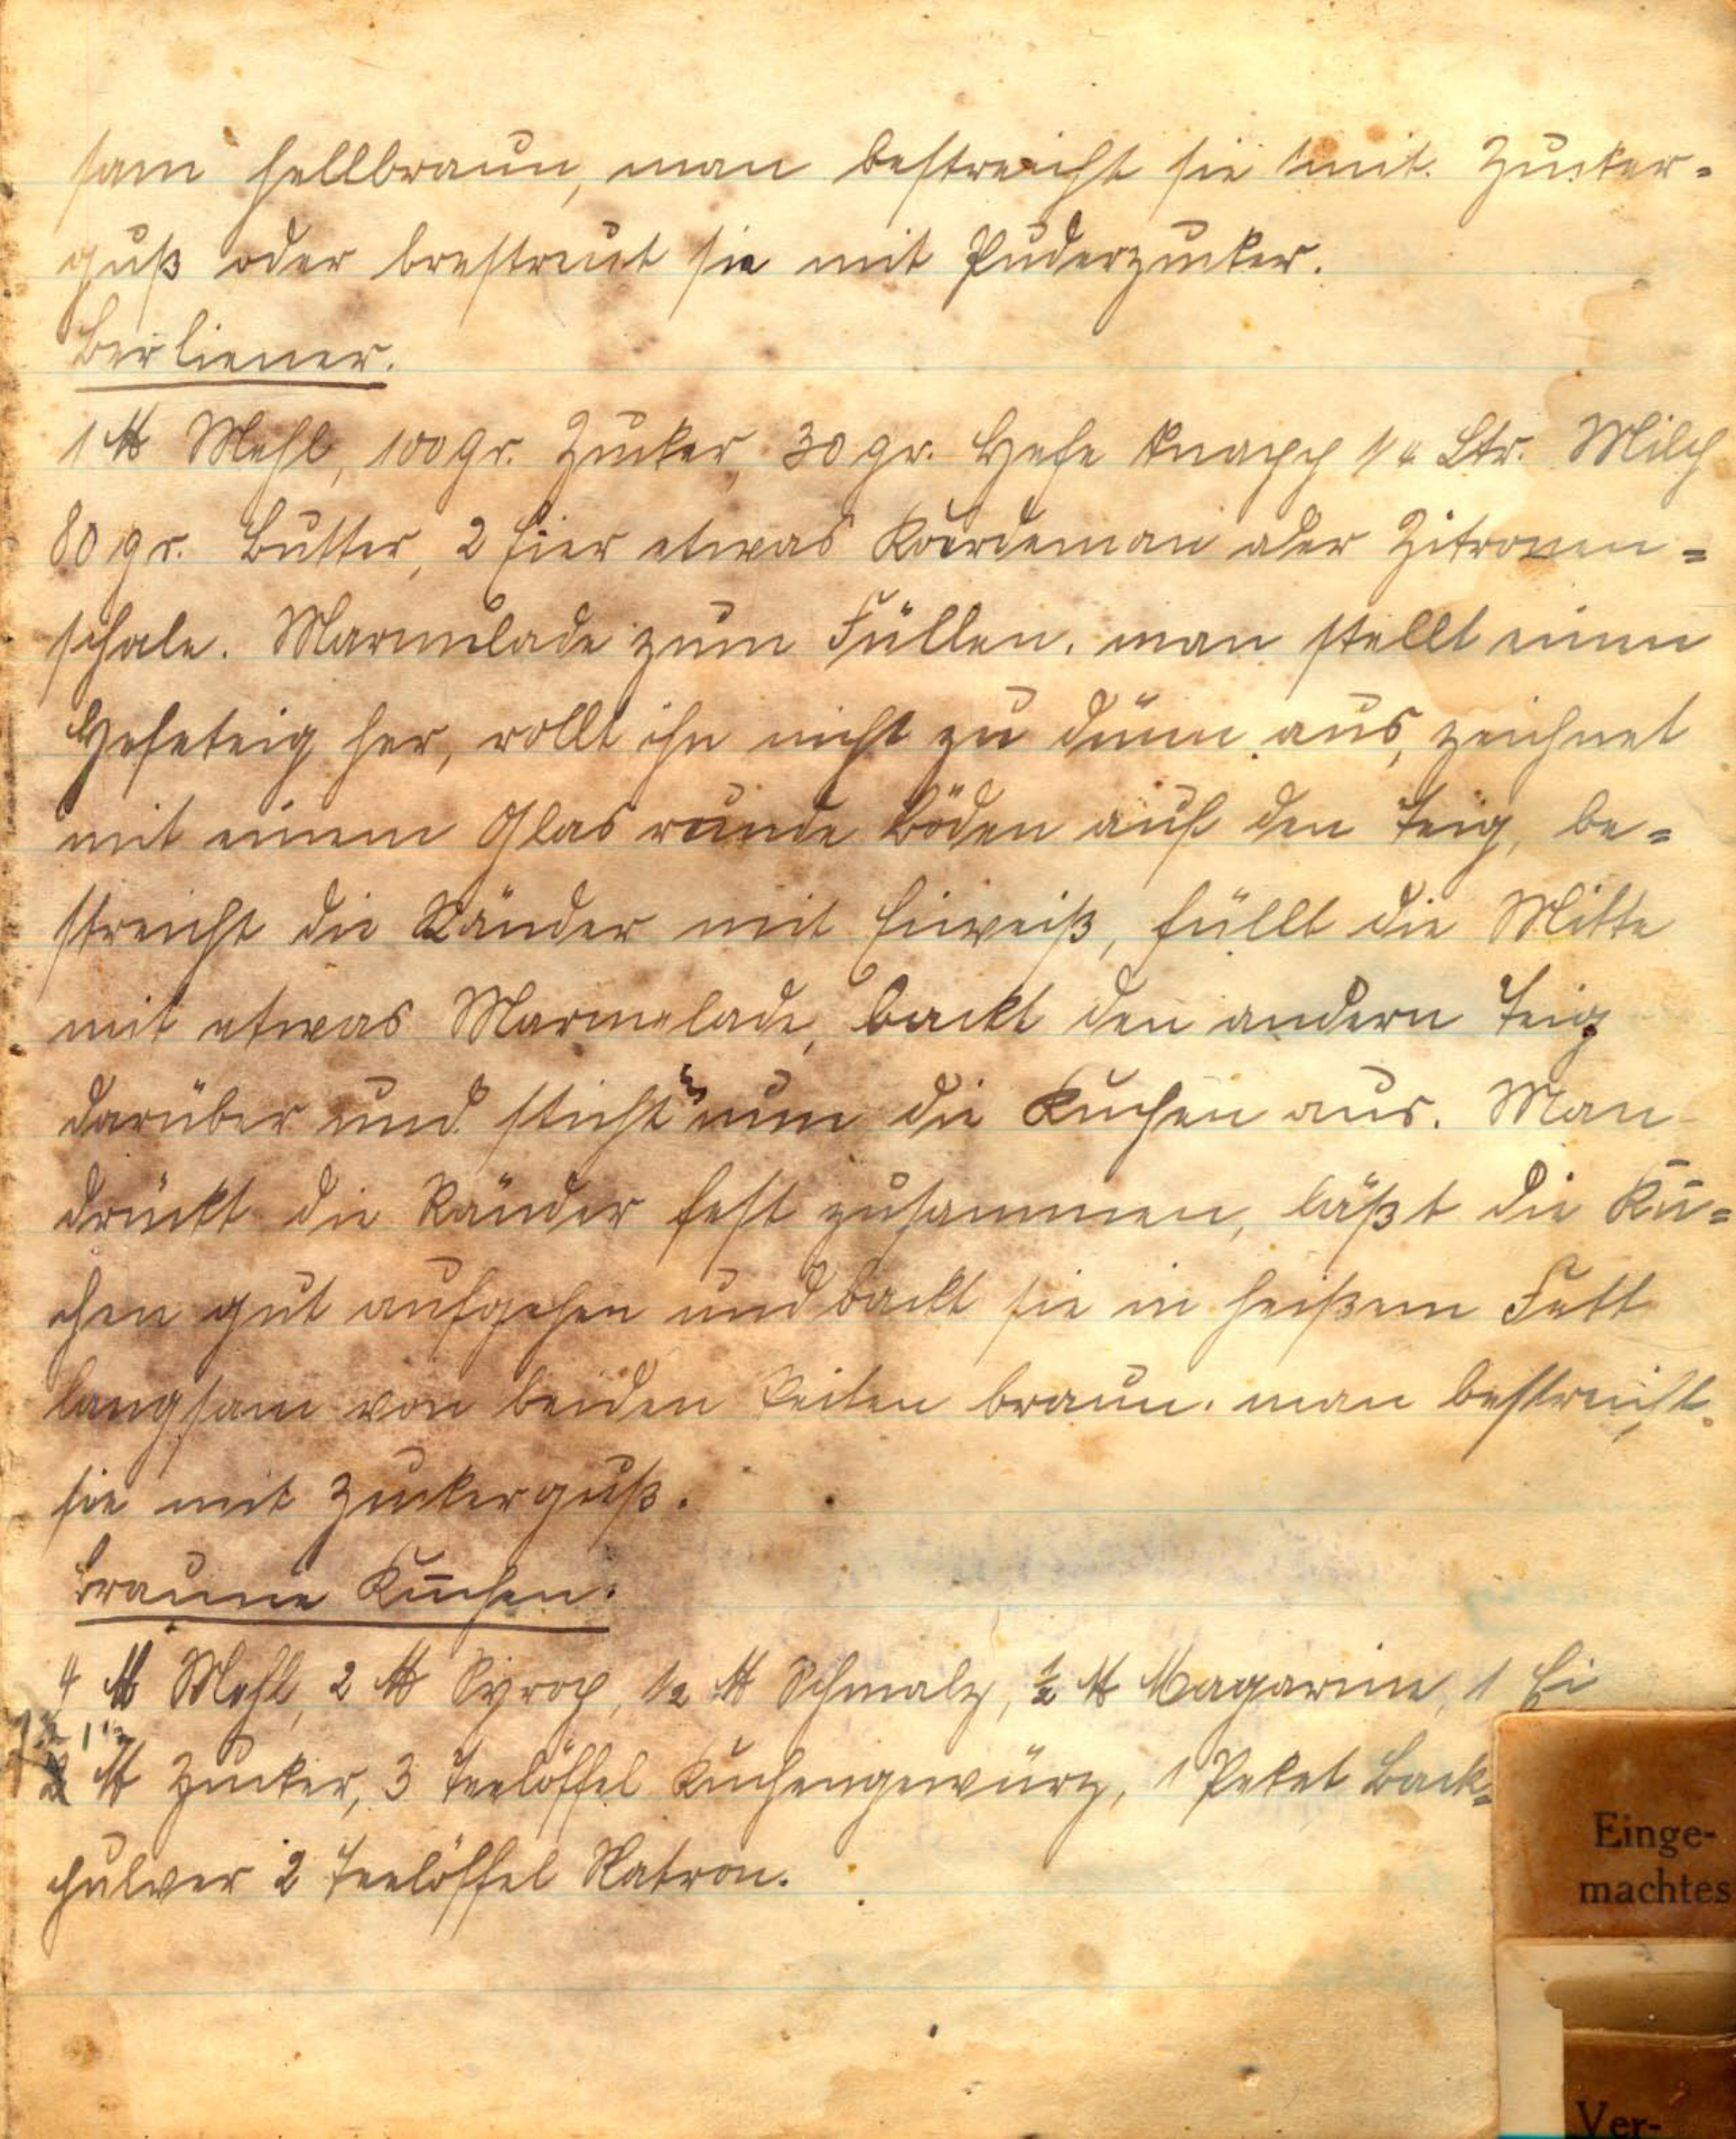 sam hellbraun, man bestreicht sie mit Zucker=
guß oder brestreut sie mit Puderzucker.
Berliener.
1 ℔ Mehl, 100 gr. Zucker, 30 gr. Hefe knapp 1/4 Ltr. Milch
80 gr. Butter, 2 Eier etwas Kardeman oder Zitronen=
schale. Marmelade zum Füllen. man stellt einen
Hefeteig her, rollt ihn nicht zu dünn aus, zeichnet
mit einem Glas runde Böden auf den Teig, be=
streicht die Ränder mit Eiweiß, füllt die Mitte
mit etwas Marmelade, backt den andern Teig
darüber und sticht nun die Kuchen aus. Man
drückt die Ränder fest zusammen, läßt die Ku=
chen gut aufgehen und backt sie in heißem Fett
langsam von beiden Seiten braun. man bestreicht
sie mit Zuckerguß.
Braune Kuchen.
4 ℔ Mehl, 2 ℔ Syrop, 1/2 ℔ Schmalz, 1/2 ℔ Magarine, 1 Ei
℔ Zucker, 3 Teelöffel Kuchengewürz, 1 Peket Back=
pulver 2 Teelöffel Natron.
Einge-
machtes
Ver-